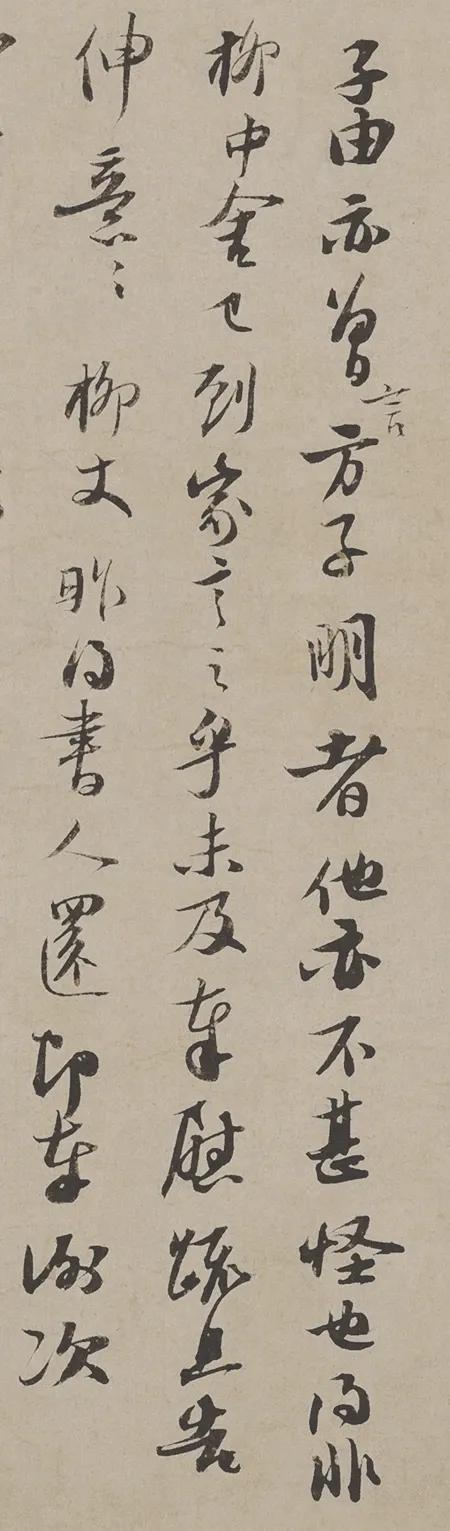 子由亦曾言方子明者他亦不甚怪也得非
柳中舍已到家言之乎未及奉慰疏且告
伸意〻柳丈昨得書人還即奉謝次